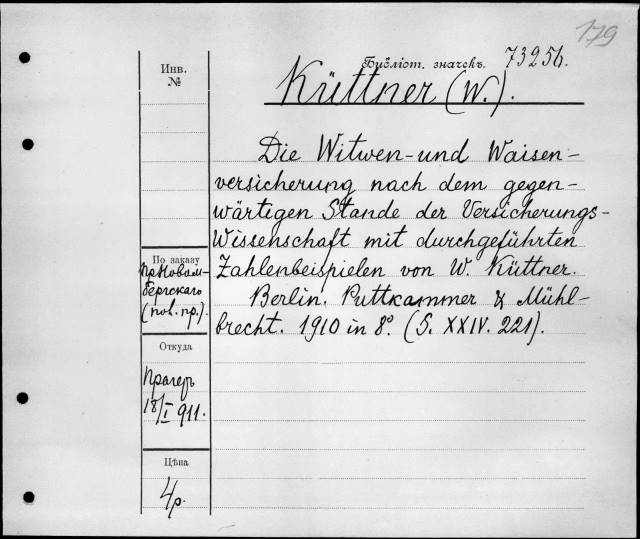 179
Библіот. значекъ. 73256.
Инв.
№
Küttner (W.).
Die Witwen- und Waisen-
versicherung nach dem gegen-
wärtigen Stande der Versicherungs-
Wissenschaft mit durchgeführten
Zahlenbeispielen von W. Küttner.
Berlin. Puttkammer & Mühl-
brecht. 1910 in 8°. (S. XXIV. 221).
По заказу
бергскаго
(пов. пр.).
Откуда
Прагеръ
18/I 911.
Цѣна
4р.